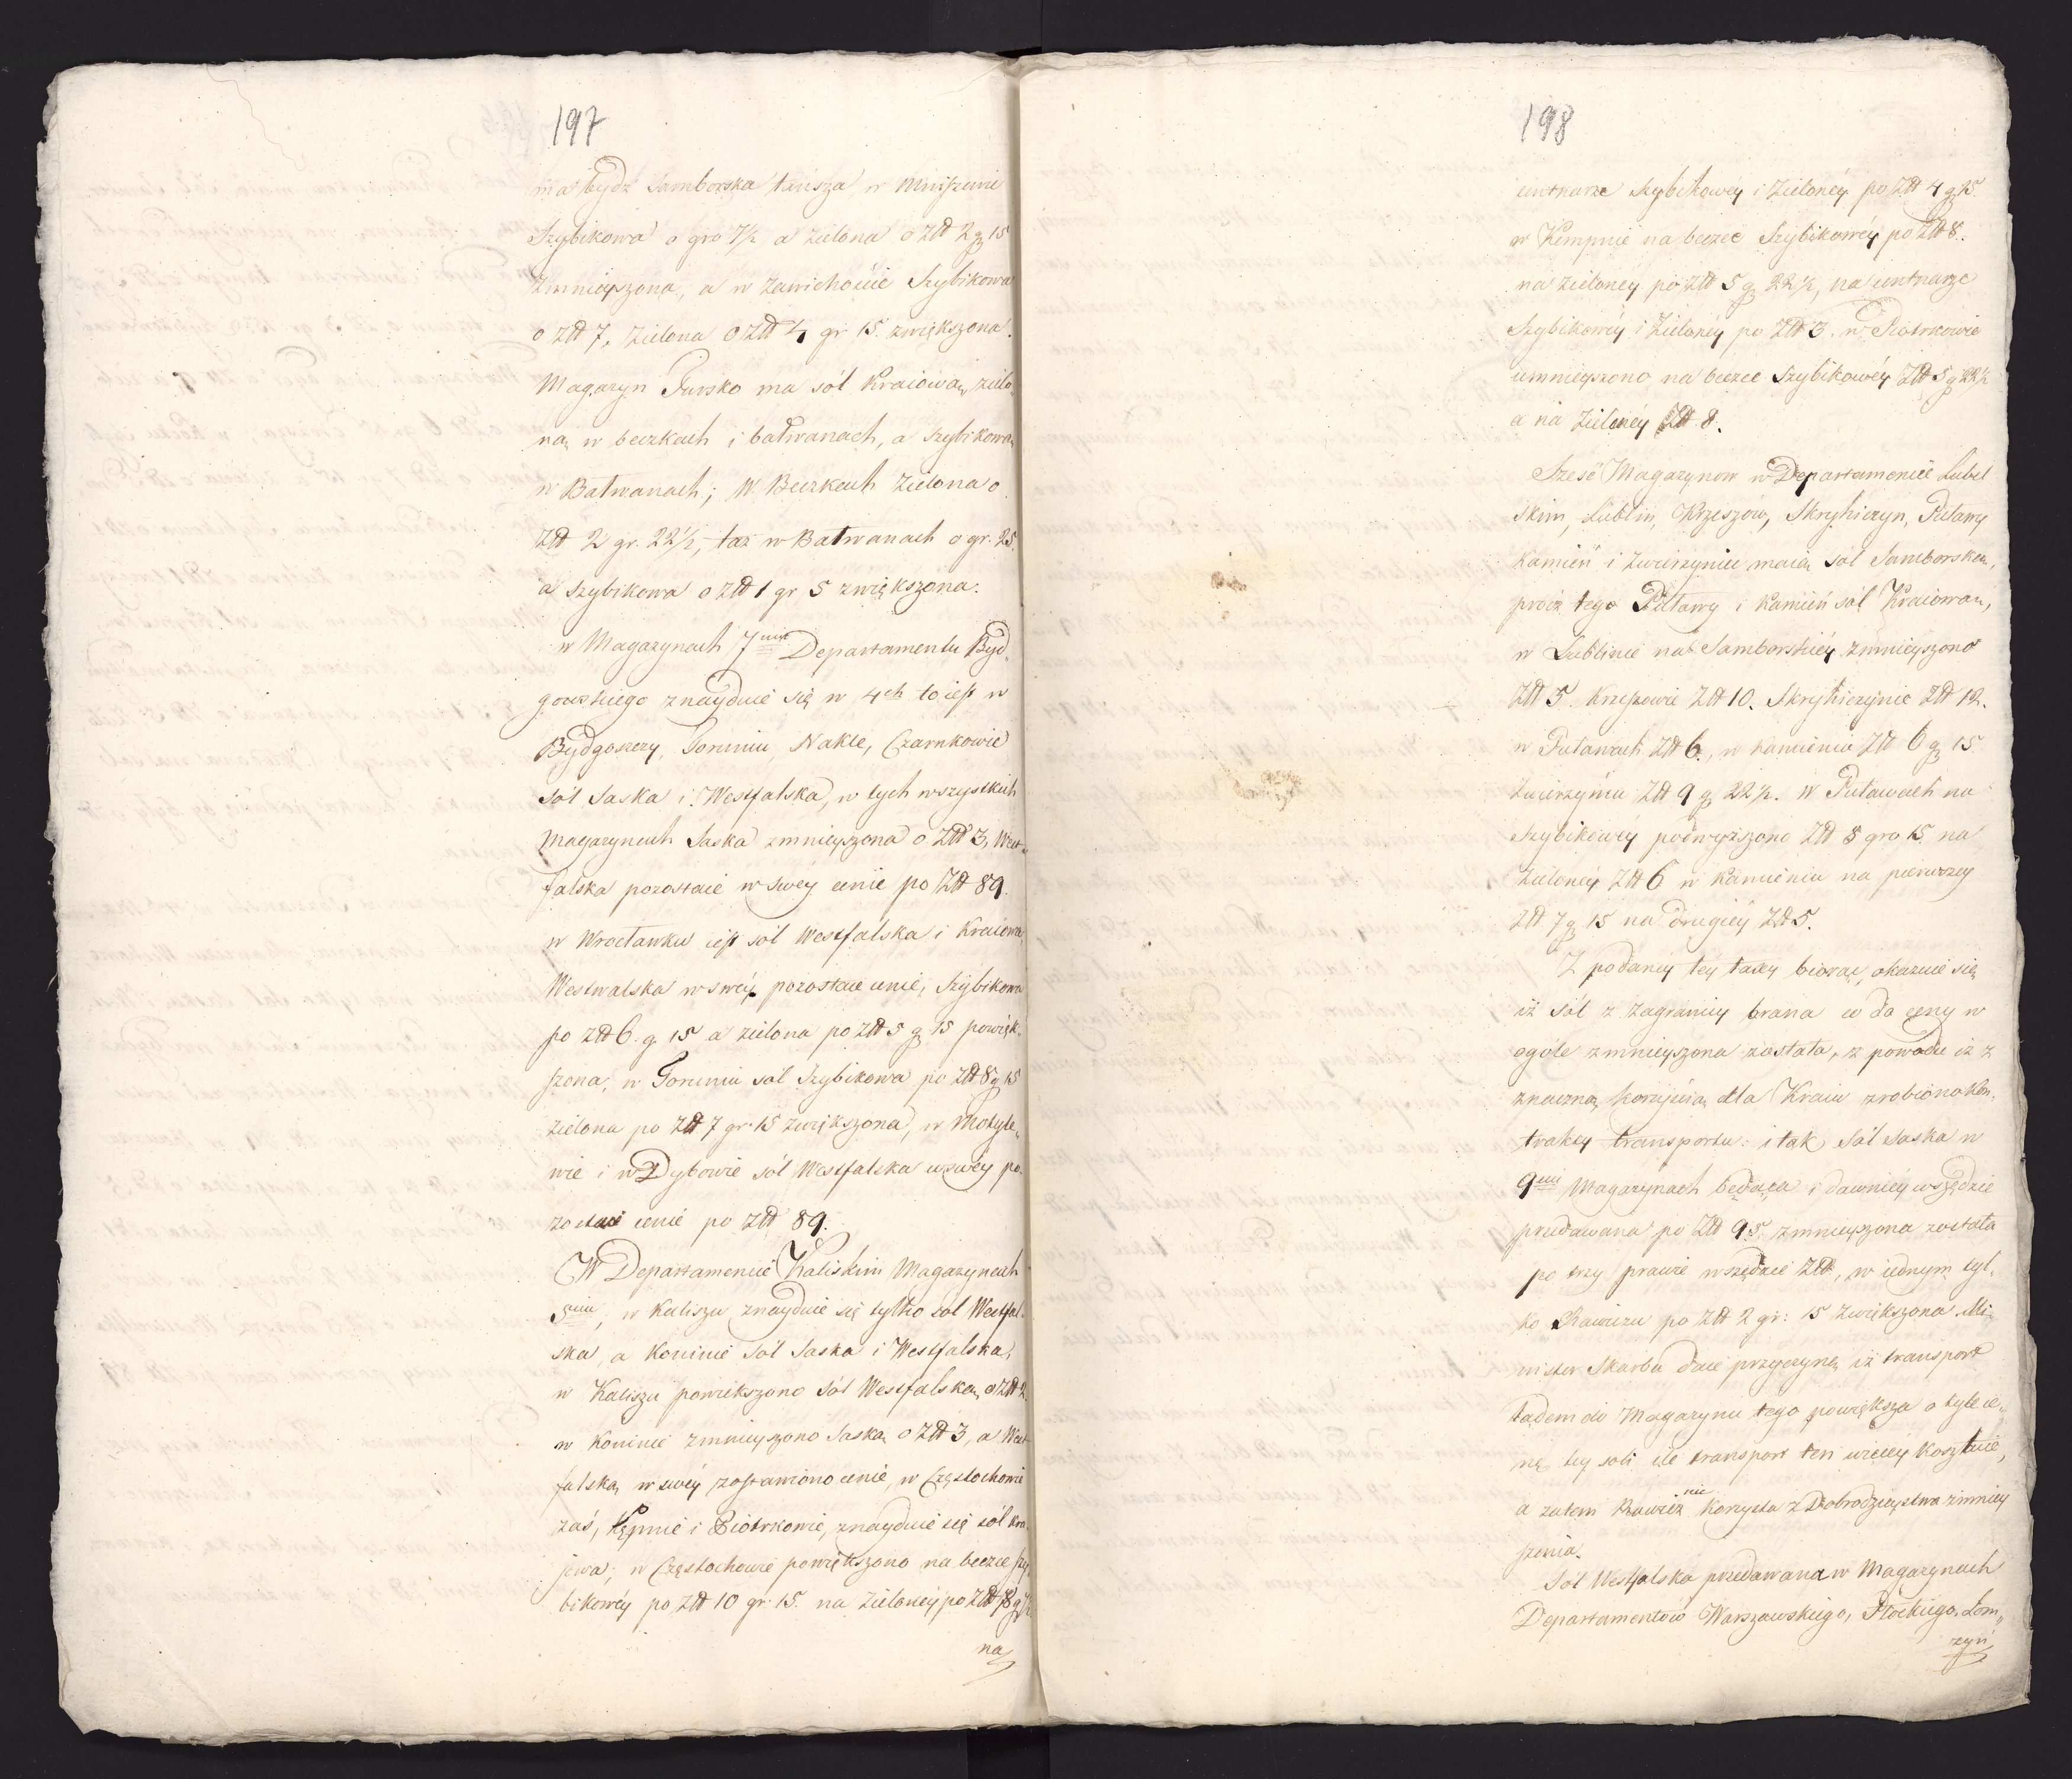 197
ma bydź Samborska tańsza, w Mniszewie
Szybikowa o gro 7½ a zielona o Złł 2 g 15
zmnieyszona, a w Zawichoście Szybikowa
o złł 7, Zielona o Złł 4 gr 15. zwiększona.
Magazyn Tursko ma sól Kraiową, zielo„
ną w beczkach i bałwanach, a szybikową
w Bałwanach; W Beczkach Zielona o
Złł 2 gr. 22½, taż w Bałwanach o gr. 25.
a Szybikowa o złł 1 gr 5 zwiększona.
w Magazynach 7miu Departamentu Byd„
goskiego znayduie się w 4ch to iest w
Bydgoszczy, Toruniu, Nakle, Czarnkowie
Sól Saska i Westfalska, w tych wszystkich
Magazynach Saska zmnieyszona o Złł 3, West„
falska pozostaie w swey cenie po Złł 89.
w Wrocławku iest sól Westfalska i Kraiowa,
Westwalska w swéy pozostaie cenie, Szybikowa
po złł 6. g. 15 a zielona po złł 5 g 15 powięk„
szona, w Toruniu sól Szybikowa po złł 8 g 15
zielona po złł 7 gr. 15 zwiększona, w Motyle„
wie i w Dybowie sól Westfalska w swéy po„
zostaie cenie po złł 89.
W Departamencie Kaliskim Magazynach
5ciu, w Kaliszu znayduie się tylko sól Westfal„
ska, a Koninie Sól Saska i Westfalska,
w Kaliszu powiekszono sól Westfalską o złł 2.
w Koninie zmnieyszono Saską o Złł 3, a West„
falską w swéy zostawiono cenie, w Częstochowie
zaś, Kępnie i Piotrkowie, znayduie się sól kra„
jowa; w Częstochowie powiększono na beczce szy„
bikowéy po złł 10 gr. 15. na Zielonéy po Złł 8 g 7½
na
198
centnarze Szybikowéy i Zielonéy po Złł 4 g 15.
w Kempnie na beczce Szybikowéy po Złł 8.
na zieloney po złł 5 g 22½, na centnarze
Szybikowéy i Zielonéy po Złł 3. w Piotrkowie
umnieyszono na beczce Szybikowéy Złł 5 g 22½
a na Zielonéy Złł 8.
Sześć Magazynow w Departamencie Lubel
skim, Lublin, Krzeszów, Skryhiczyn, Puławy
Kamień i Zwierzyniec maią sól Samborską,
procz tego Puławy i Kamień sól Kraiową,
w Lublinie na Samborskiéy zmnieyszono
Złł 5. Krzeszowie Złł 10. Skryhiczynie Złł 12.
w Puławach Złł 6., w Kamieniu Złł 6 g 15
Zwierzyńcu Złł 9 g 22½. W Puławach na
Szybikowéy podwyższono Złł 8 gro 15 na
Zielonéy Złł 6 w Kamieniu na pierwszey
złł 7 g 15 na drugiéy Złł 5.
Z podaney tey taxy biorąc, okazuie się
iż sól z zagranicy brana co do ceny w
ogóle zmnieyszona została, z powodu iż z
znaczną korzyścią dla Kraiu zrobiono kon„
trakty transportu: i tak, Sól Saska w
9ciu Magazynach będąca i dawniéy wszędzie
przedawana po Złł 95. zmnieyszona została
po trzy prawie wszędzie Złł, w iednym tyl„
ko Rawiczu po złł 2 gr: 15 zwiększona. Mi„
nister Skarbu daie przyczynę iż transport
lądem do Magazynu tego powiększa o tyle ce„
nę tey soli ile transport ten więcéy kosztuie,
a zatem Rawicz nie korzysta z Dobrodzieystwa zmniey
szenia.
Sól Westfalska przedawana w Magazynach
Departamentów Warszawskiego, Płockiego, Łom„
żyń